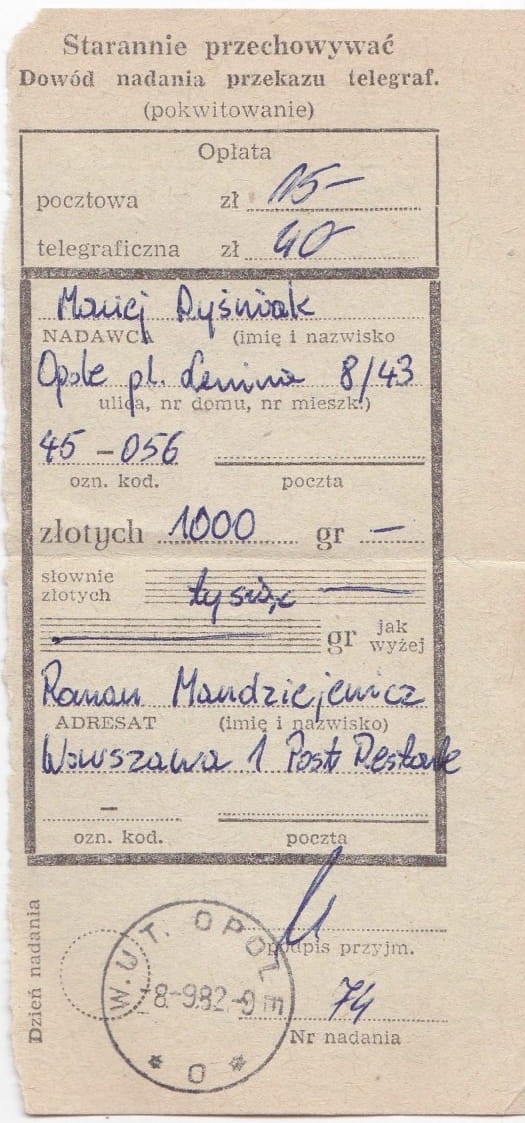 Starannie przechowywać
Dowód nadania przekazu telegraf.
(pokwitowanie)
Opłata
pocztowa zł 15-
telegraficzna zł 40-
Maciej Dyśniak
NADAWCA (imię i nazwisko
Opole pl. Lenina 8/43
ulica, nr domu, nr mieszk.)
45-056
ozn. kod. poczta
złotych 1000 gr —
słownie złotych tysiąc —
gr jak wyżej
Roman Mandziejewicz
ADRESAT (imię i nazwisko)
Warszawa 1 Post Restante
–
ozn. kod. poczta
podpis przyjm.
Dzień nadania
W.U.T. OPOLE
8-982-9
O
74
Nr nadania